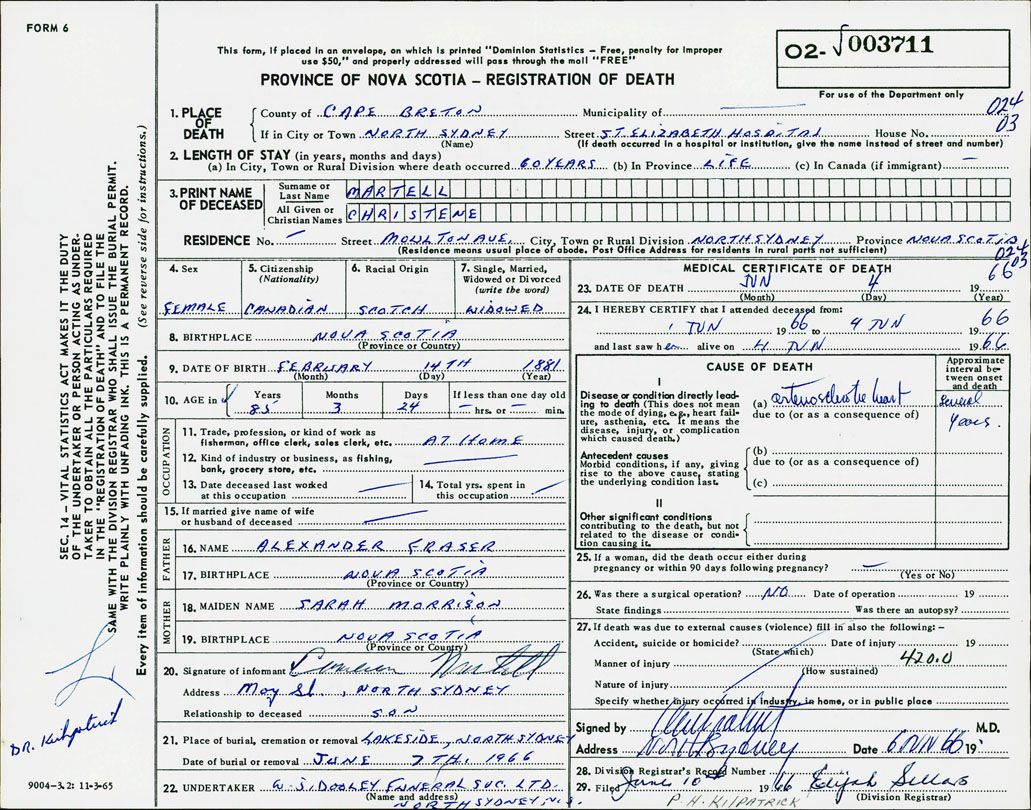 FORM 6
This form, if placed in an envelope, on which is printed "Dominion Statistics – Free, penalty for improper
use $50," and properly addressed will pass through the mail "FREE"
PROVINCE OF NOVA SCOTIA – REGISTRATION OF DEATH
02- 003711
For use of the Department only
024
03
1. PLACE OF DEATH
County of CAPE BRETON Municipality of
If in City or Town NORTH SYDNEY Street ST ELIZABETH HOSPITAL House No.
(Name) (If death occurred in a hospital or institution, give the name instead of street and number)
2. LENGTH OF STAY (in years, months and days)
(a) In City, Town or Rural Division where death occurred 60 YEARS (b) In Province LIFE (c) In Canada (if immigrant) —
3. PRINT NAME OF DECEASED
Surname or Last Name MARTELL
All Given or Christian Names CHRISTENE
RESIDENCE No. — Street MOULTON AVE. City, Town or Rural Division NORTH SYDNEY Province NOVA SCOTIA
(Residence means usual place of abode. Post Office Address for residents in rural parts not sufficient)
024
03
4. Sex FEMALE
5. Citizenship (Nationality) CANADIAN
6. Racial Origin SCOTCH
7. Single, Married, Widowed or Divorced (write the word) WIDOWED
8. BIRTHPLACE NOVA SCOTIA
(Province or Country)
9. DATE OF BIRTH FEBRUARY 14TH 1881
(Month) (Day) (Year)
10. AGE in Years 85 Months 3 Days 24 If less than one day old — hrs. or — min.
OCCUPATION
11. Trade, profession, or kind of work as
fisherman, office clerk, sales clerk, etc. AT HOME
12. Kind of industry or business, as fishing,
bank, grocery store, etc.
13. Date deceased last worked
at this occupation
14. Total yrs. spent in
this occupation
15. If married give name of wife
or husband of deceased
FATHER
16. NAME ALEXANDER FRASER
17. BIRTHPLACE NOVA SCOTIA
(Province or Country)
MOTHER
18. MAIDEN NAME SARAH MORRISON
19. BIRTHPLACE NOVA SCOTIA
(Province or Country)
20. Signature of informant Martell
Address May St., NORTH SYDNEY
Relationship to deceased SON
21. Place of burial, cremation or removal LAKESIDE, NORTH SYDNEY
Date of burial or removal JUNE 7TH, 1966
22. UNDERTAKER W. J. DOOLEY FUNERAL SVC. LTD.
(Name and address) NORTH SYDNEY N.S.
MEDICAL CERTIFICATE OF DEATH
23. DATE OF DEATH JUN 4 1966
(Month) (Day) (Year)
24. I HEREBY CERTIFY that I attended deceased from:
1 JUN 1966 to 4 JUN 1966
and last saw her alive on 4 JUN 1966
CAUSE OF DEATH
Approximate interval between onset and death
I
Disease or condition directly leading to death (This does not mean the mode of dying, e.g., heart failure, asthenia, etc. It means the disease, injury, or complication which caused death.)
(a) arteriosclerotic heart
several years.
due to (or as a consequence of)
Antecedent causes
Morbid conditions, if any, giving rise to the above cause, stating the underlying condition last.
(b)
due to (or as a consequence of)
(c)
II
Other significant conditions
contributing to the death, but not related to the disease or condition causing it.
25. If a woman, did the death occur either during
pregnancy or within 90 days following pregnancy? —
(Yes or No)
26. Was there a surgical operation? NO Date of operation 19
State findings Was there an autopsy?
27. If death was due to external causes (violence) fill in also the following:–
Accident, suicide or homicide? Date of injury 19
(State which)
Manner of injury 420.0
(How sustained)
Nature of injury
Specify whether injury occurred in industry, in home, or in public place
Signed by M.D.
Address North Sydney Date 6 JUN 66 19
28. Division Registrar's Record Number
29. Filed June 10th 1966 Elijah Sellars
(Division Registrar)
P.H. KILPATRICK
SEC. 14 – VITAL STATISTICS ACT MAKES IT THE DUTY
OF THE UNDERTAKER OR PERSON ACTING AS UNDER-
TAKER TO OBTAIN ALL THE PARTICULARS REQUIRED
IN THE "REGISTRATION OF DEATH" AND TO FILE THE
SAME WITH THE DIVISION REGISTRAR WHO SHALL ISSUE THE BURIAL PERMIT.
WRITE PLAINLY WITH UNFADING INK. THIS IS A PERMANENT RECORD.
Every item of information should be carefully supplied. (See reverse side for instructions.)
DR. Kirkpatrick
9004-3.2: 11-3-65